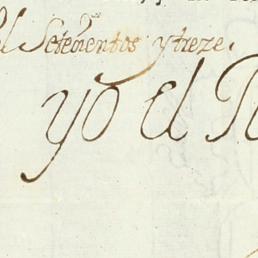 el Setecientos y treze.
yo el R